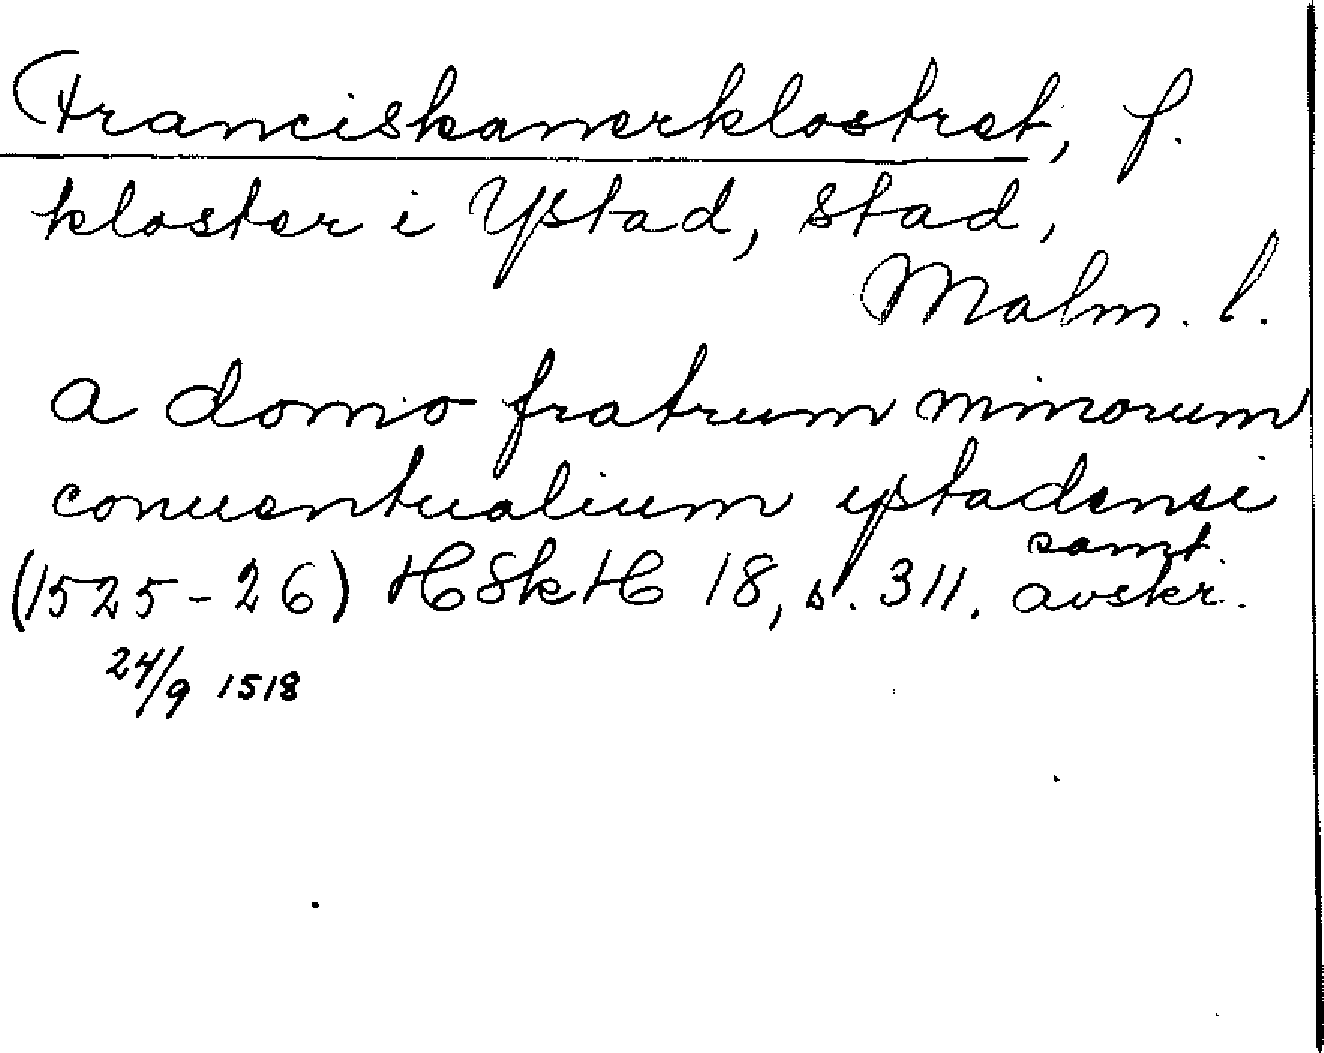 Franciskanerklostret, f.
kloster i Ystad, stad,
Malm. l.
a domo fratrum minorum
conuentualium ystadensi
(1525-26) HSkH 18, s. 311. samt. avskr.
24/9 1518